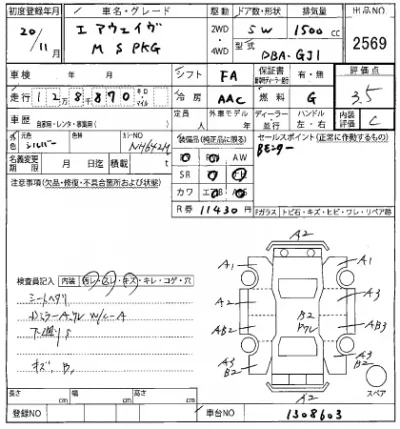 初度登録年月 車名・グレード 駆動 ドア数・形状 排気量 出品NO
20/11月 エアウェイヴ M S PKG 2WD・4WD SW 1500cc 2569
型式 DBA-GJ1
車検 年 月 シフト FA 保証書 有・無 評価点
走行 12万8870 km マイル 冷房 AAC 燃料 G 3.5
車歴 自家用・レンタ・事業用( ) 定員 人 外車モデル 年 ディーラー・並行 ハンドル 左・右 内装評価 C
色 元色 シルバー 色替 カラーNO NH642M 装備品(純正品に限る) セールスポイント(正常に作動するもの)
Bモニター
名義変更期限 月 日迄 積載 t
AW
SR
注意事項(欠品・修復・不具合箇所および状態)
カワ
R券 11430円
Fガラス トビ石・キズ・ヒビ・ワレ・リペア跡
A2
A1 A1
検査員記入 内装 キレ・コゲ・穴
A2 A3
シートヘタリ
W/C-A
AB2 B2 AB3
下廻りS
A3 B2 A3 B2
キズ、B。
A2
スペア
長さ cm 幅 cm 高さ cm
登録NO 車台NO 1308603